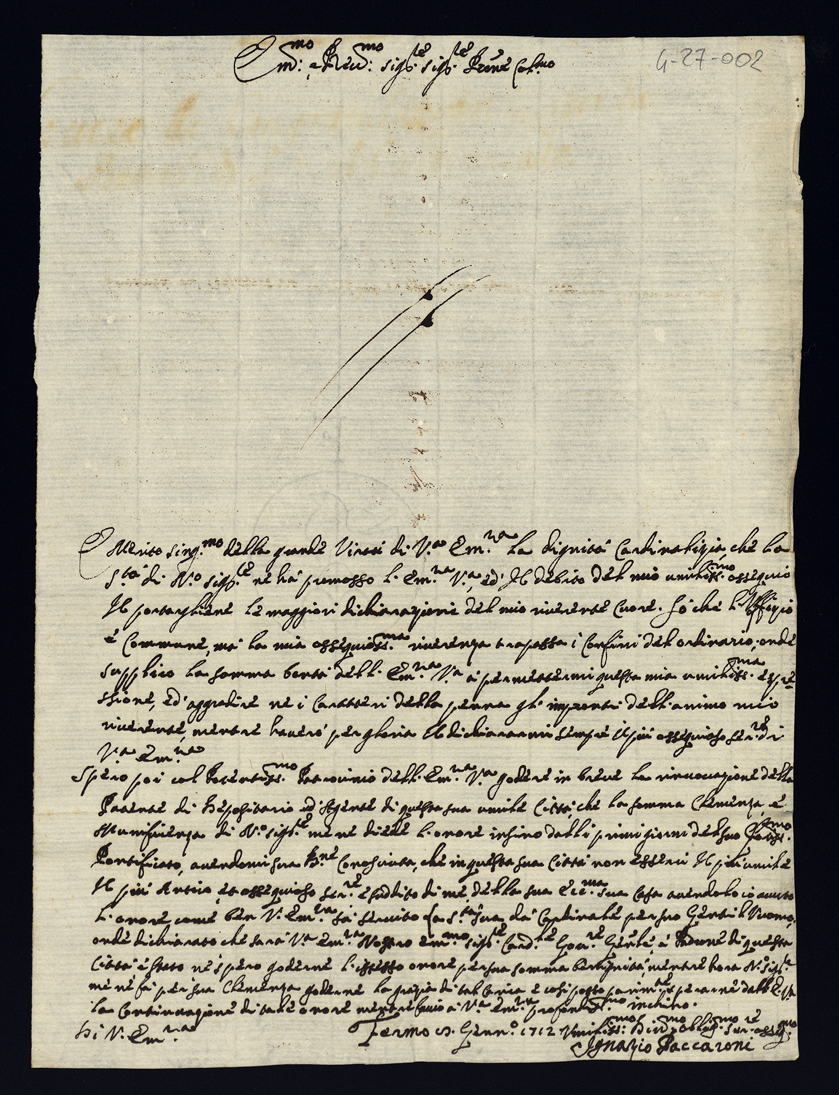 Em:mo e Reu:mo sig:re sig:re Prone Col:mo
4-27-002
È Merito sing:mo della grande Virtù di V:ra Em:za la dignità Cardinalizia, che la
S:tà di N:ro sig:re ne hà promosso l'Em:za V:ra, ed' Il debito del mio umiliss:mo ossequio
Il portarghene le maggiori dichiarazioni del mio riuerente Cuore. Sò che l'Uffizio
è Commune, mà la mia ossequios:ma riuerenza trapassa i Confini del ordinario, onde
supplico la somma bontà dell' Em:za V:ra à permettermi questa mia umiliss:ma espre
ssione, ed' aggradire ne i Caratteri della penna gl' impronti dell' animo mio
riuerente, mentre hauerò per gloria il dichiararmi sempre il più ossequioso ser:re di
V:ra Em:za
Spero poi col Potentiss:mo Patrocinio dell' Em:za V:ra godere in breue la rinouazione della
Patente di Depositario ed' Agente di questa sua umile Città, che la somma Clemenza, e
Munificenza di N:ro sig:re me ne diede l'onore insino dalli primi giorni del suo
Pontificato, auendomi sua conosciuto, che in questa sua Città non esserui Il più umile
Il più Antico, et ossequioso ser:re e suddito di me, della sua Ecc:ma sua Casa auendolo io auuto
l'onore, come ben V: Em:za sà seruito la S:tà sua da Cardinale per suo Gentil'Vuomo,
onde dichiarato che sarà V:ra Em:za Nostro Em:mo sig:re Card:le Gou:re Gen:le e Padrone di questa
Città è stato ne spero goderne l'istesso onore per sua somma benignità, mentre hora N:ro sig:re
me ne fà per sua Clemenza godere la grazia di tal Carica e
la Continuazione di tale onore mentre faccio à V:ra Em:za profondiss:mo inchino.
Di V: Em:za
Fermo Genn:o 1712 Vmiliss:mo Diu:mo oblig:mo ser:re osseq:mo
Ignazio Paccaroni